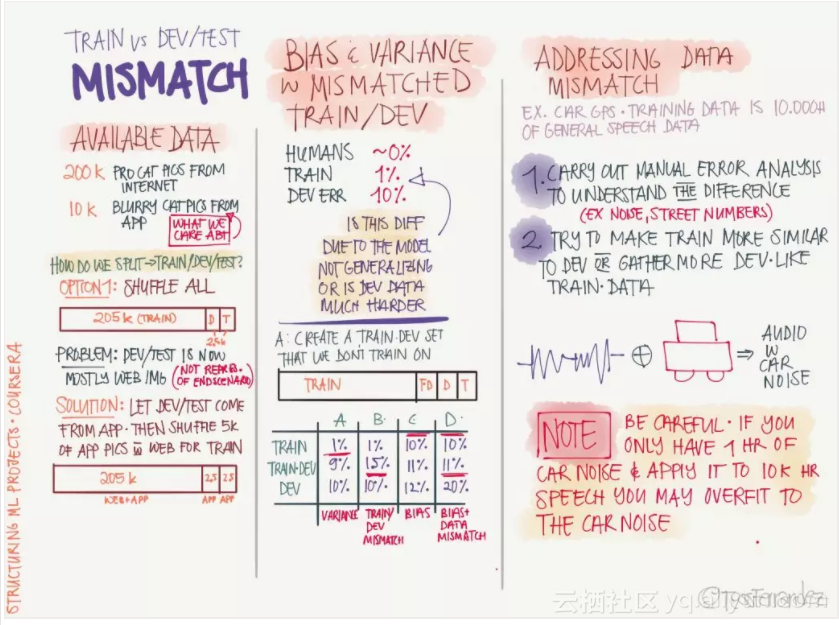 TRAIN vs DEV/TEST
MISMATCH
AVAILABLE DATA
200k PRO CAT PICS FROM
INTERNET
10k BLURRY CAT PICS FROM
APP
WHAT WE
CARE ABT
HOW DO WE SPLIT→TRAIN/DEV/TEST?
OPTION 1: SHUFFLE ALL
205k (TRAIN) D T
PROBLEM: DEV/TEST IS NOW
MOSTLY WEB IMG (NOT REPRES.
OF END SCENARIO)
SOLUTION: LET DEV/TEST COME
FROM APP. THEN SHUFFLE 5K
OF APP PICS W WEB FOR TRAIN
205k 2,5 2,5
WEB+APP APP APP
STRUCTURING ML PROJECTS · COURSERA
BIAS & VARIANCE
W MISMATCHED
TRAIN/DEV
HUMANS ~0%
TRAIN 1%
DEV ERR 10%
IS THIS DIFF
DUE TO THE MODEL
NOT GENERALIZING
OR IS DEV DATA
MUCH HARDER
A: CREATE A TRAIN·DEV SET
THAT WE DON'T TRAIN ON
TRAIN D T
A B C D
TRAIN 1% 1% 10% 10%
TRAIN·DEV 9% 1.5% 11% 11%
DEV 10% 10% 12% 20%
VARIANCE TRAIN/ BIAS BIAS+
DEV DATA
MISMATCH MISMATCH
ADDRESSING DATA
MISMATCH
EX. CAR GPS · TRAINING DATA IS 10.000H
OF GENERAL SPEECH DATA
1. CARRY OUT MANUAL ERROR ANALYSIS
TO UNDERSTAND THE DIFFERENCE
(EX NOISE, STREET NUMBERS)
2. TRY TO MAKE TRAIN MORE SIMILAR
TO DEV OR GATHER MORE DEV·LIKE
TRAIN·DATA
AUDIO
W
CAR
NOISE
NOTE
BE CAREFUL · IF YOU
ONLY HAVE 1 HR OF
CAR NOISE & APPLY IT TO 10K HR
SPEECH YOU MAY OVERFIT TO
THE CAR NOISE
云栖社区